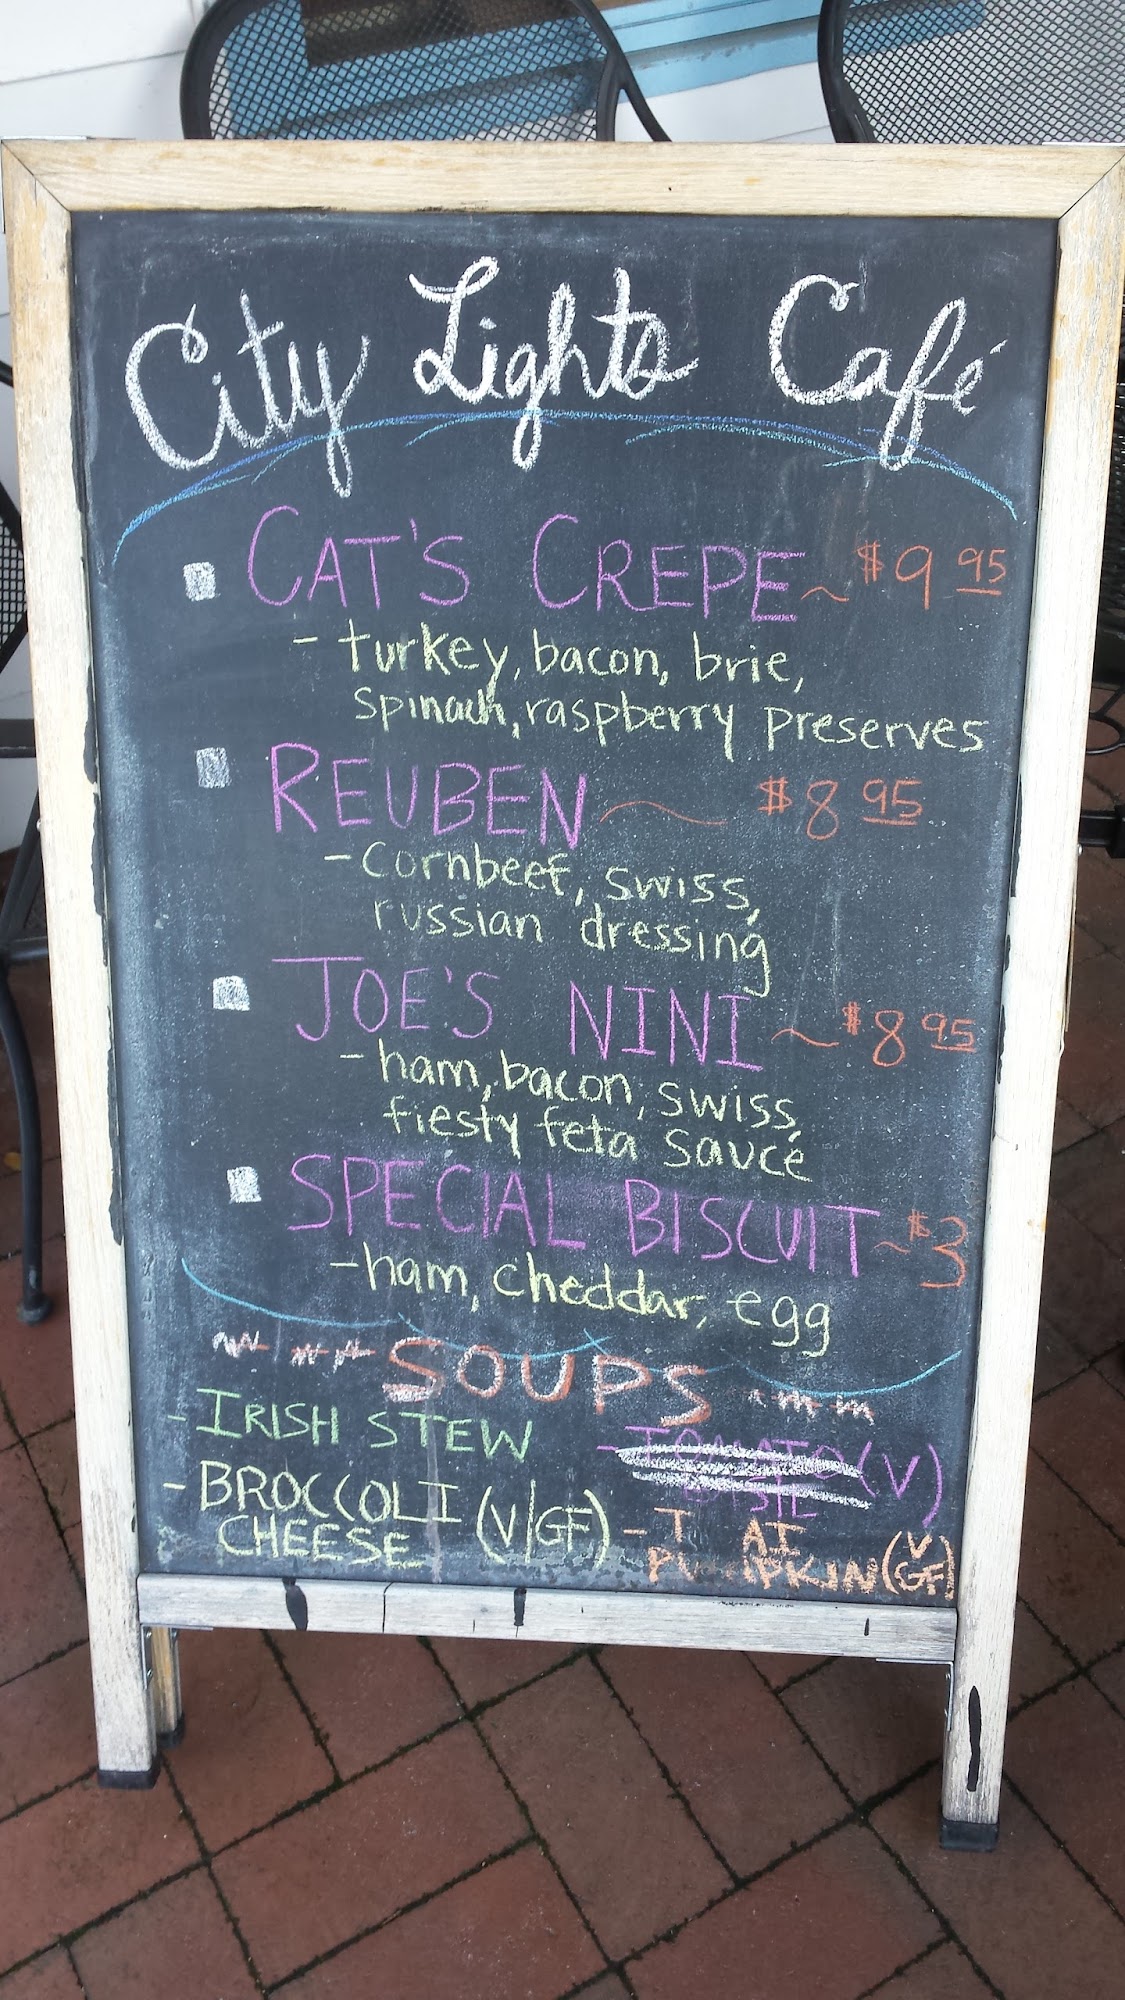 City Lights Café
CAT'S CREPE ~ $9 95
- turkey, bacon, brie,
spinach, raspberry preserves
REUBEN ~ $8 95
- cornbeef, swiss,
russian dressing
JOE'S NINI ~ $8 95
- ham, bacon, swiss,
fiesty feta sauce
SPECIAL BISCUIT ~ $3
- ham, cheddar, egg
SOUPS
- IRISH STEW
- BROCCOLI (V/GF)
CHEESE
- TOMATO (V)
BASIL
- T AI
PUMPKIN (V GF)